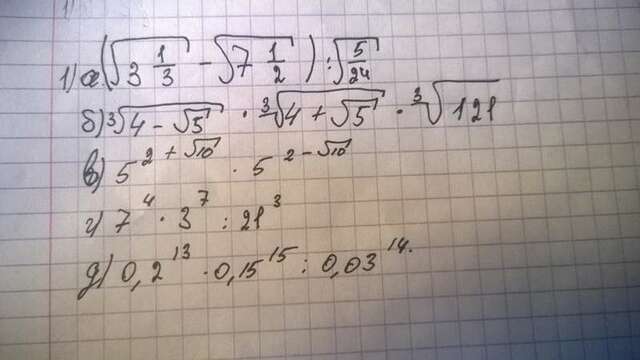 1) а(√3 1/3 - √7 1/2) : √5/24
б) ³√4 - √5 · ³√4 + √5 · ³√121
в) 5^2 + √10 · 5^2 - √10
г) 7^4 · 3^7 : 21^3
д) 0,2^13 · 0,15^15 : 0,03^14.